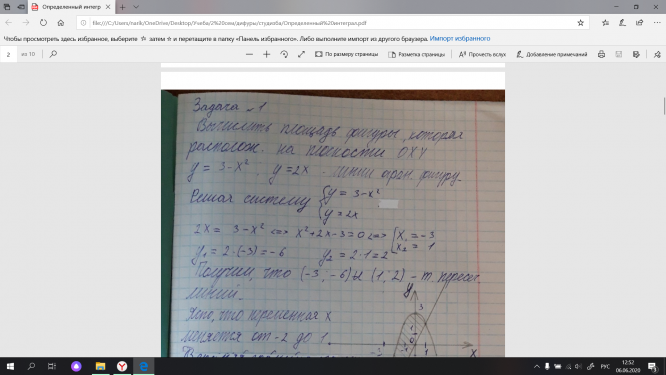 Определенный интегр
file:///C:/Users/narik/OneDrive/Desktop/Учеба/2%20сем/дифуры/студизба/Определенный%20интеграл.pdf
Чтобы просмотреть здесь избранное, выберите затем и перетащите в папку «Панель избранного». Либо выполните импорт из другого браузера. Импорт избранных
2 из 10
По размеру страницы Разметка страницы Прочесть вслух Добавление примечаний
Задача №1
Вычислить площадь фигуры, которая
располож. на плоскости OXY
y = 3-x² , y = 2x - линии огран. фигуру.
Решая систему { y = 3-x²
y = 2x
2x = 3-x² <=> x²+2x-3=0 <=> [ x₁ = -3
x₂ = 1
y₁ = 2·(-3) = -6 y₂ = 2·1 = 2
Получим, что (-3; -6) и (1; 2) - т. пересеч.
линий.
y
3
что переменная x
меняется от -2 до 1
1
0
-1 1
x
РУС
12:52
06.06.2020